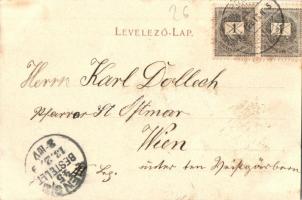 26
LEVELEZŐ-LAP.
Herrn Karl Dollech
Pfarrer St Othmar
Wien
unter den Weißgärbern
BESTELLT